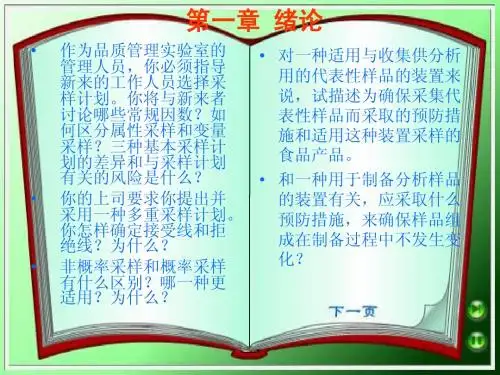 第一章 绪论
• 作为品质管理实验室的
管理人员，你必须指导
新来的工作人员选择采
样计划。你将与新来者
讨论哪些常规因数？如
何区分属性采样和变量
采样？三种基本采样计
划的差异和与采样计划
有关的风险是什么？
• 你的上司要求你提出并
采用一种多重采样计划。
你怎样确定接受线和拒
绝线？为什么？
• 非概率采样和概率采样
有什么区别？哪一种更
适用？为什么？
• 对一种适用与收集供分析
用的代表性样品的装置来
说，试描述为确保采集代
表性样品而采取的预防措
施和适用这种装置采样的
食品产品。
• 和一种用于制备分析样品
的装置有关，应采取什么
预防措施，来确保样品组
成在制备过程中不发生变
化？
下一页